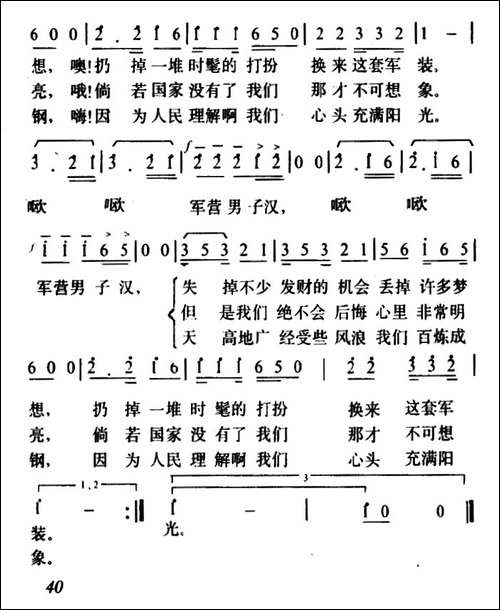 6 0 0 | 2 . 2 1 6 | 1 1 1 6 5 0 | 2 2 3 3 2 | 1 - |
想，噢!扔 掉一堆时髦的打扮 换来这套军 装，
亮，哦!倘 若国家没有了我们 那才不可想 象。
钢，嗨!因 为人民理解啊我们 心头充满阳 光。
3 . 2 1 | 3 . 2 1 | 2 2 2 1 2 | 0 0 | 2 . 1 6 | 2 . 1 6 |
噉 噉 军营男子汉， 噉 噉
f 1 1 1 6 5 | 0 0 | 3 5 3 2 1 | 3 5 3 2 1 | 5 6 1 6 5 |
军营男子汉， 失 掉不少 发财的 机会 丢掉 许多梦
但 是我们 绝不会 后悔 心里 非常明
天 高地广 经受些 风浪 我们 百炼成
6 0 0 | 2 . 2 1 6 | 1 1 1 6 5 0 | 2 2 3 3 2 |
想， 扔 掉 一堆 时髦的 打扮 换来 这套军
亮， 倘 若 国家 没有了 我们 那才 不可想
钢， 因 为 人民 理解啊 我们 心头 充满阳
1,2 3
1 - :|| 1 - | 1 0 0 ||
装。 光。
象。
40